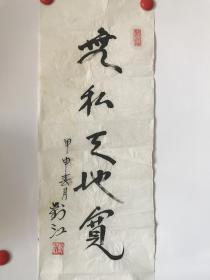 無私天地寬
甲申春月劉江